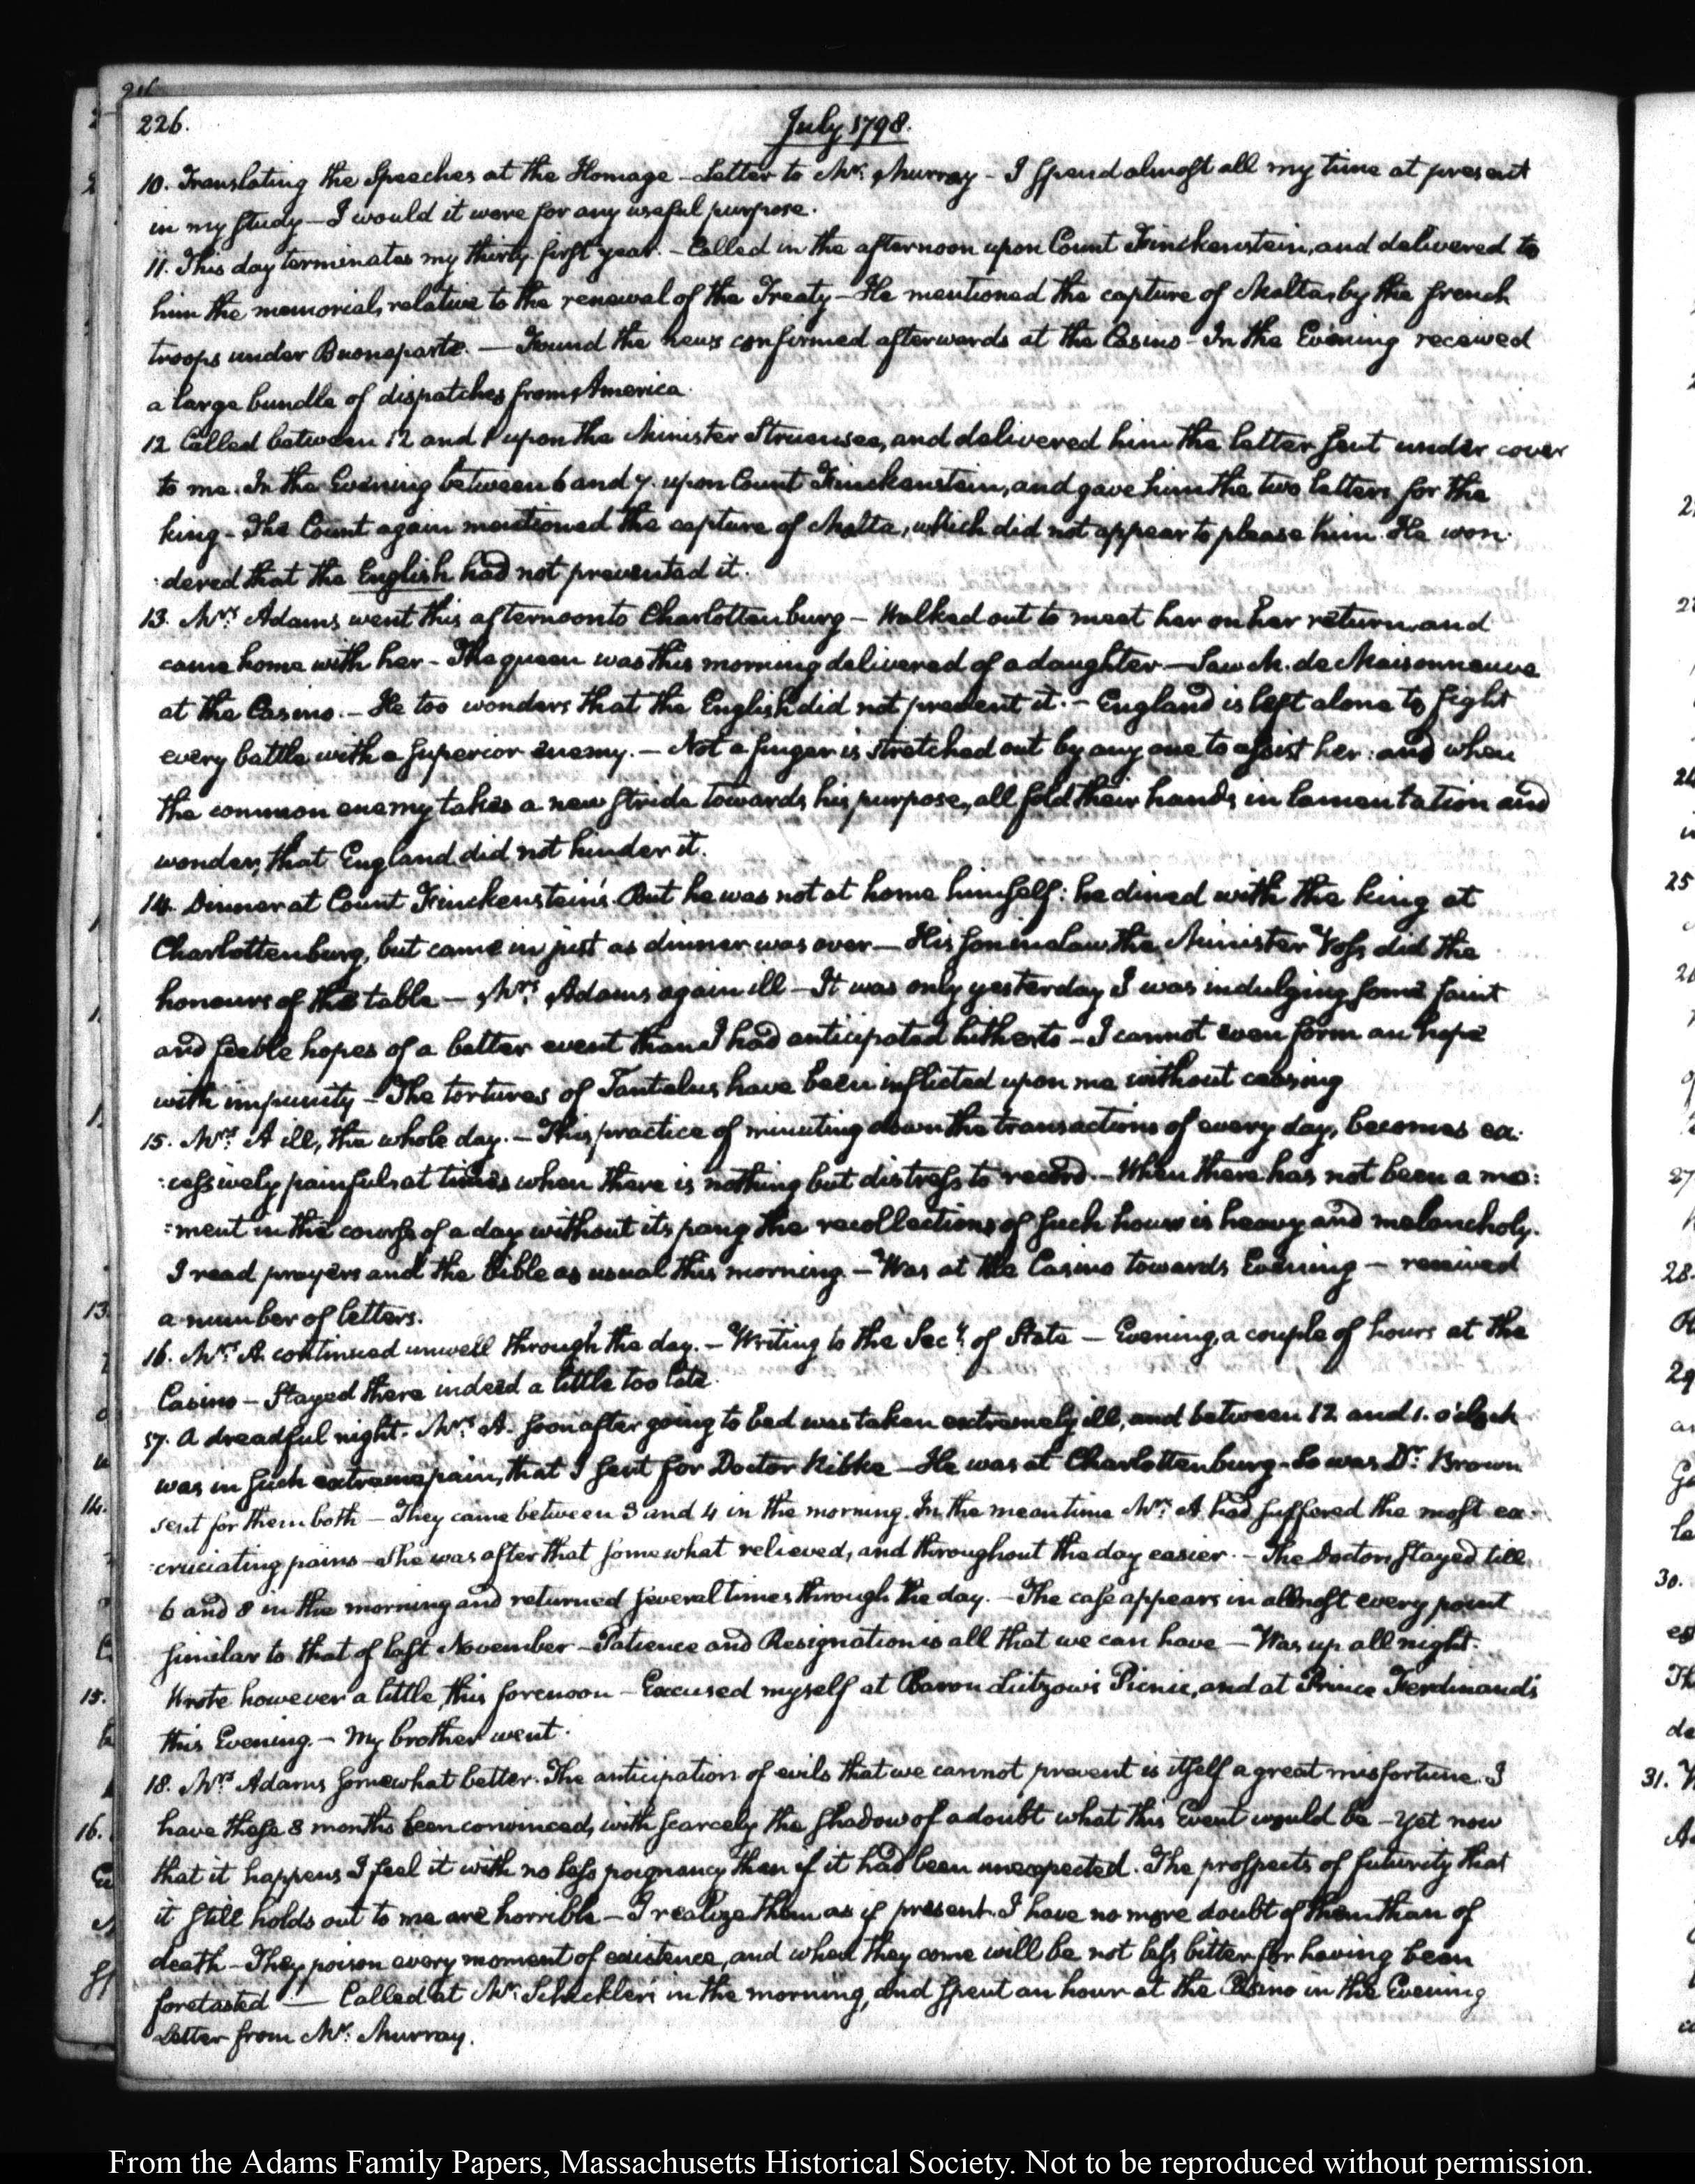 226.
July 1798.
10. Translating the Speeches at the Homage – Letter to Mr. Murray – I spend almost all my time at present
in my study – I would it were for any useful purpose.
11. This day terminates my thirty-first year. – Called in the afternoon upon Count Finckenstein, and delivered to
him the memorial, relative to the renewal of the Treaty – He mentioned the capture of Malta, by the french
troops under Buonaparte. – Found the news confirmed afterwards at the Casino – In the Evening received
a large bundle of dispatches from America.
12. Called between 12 and 1 upon the Minister Struensee, and delivered him the letter sent under cover
to me. In the Evening between 6 and 7. upon Count Finckenstein, and gave him the two letters for the
king – The Count again mentioned the capture of Malta, which did not appear to please him. He won:
:dered that the English had not prevented it.
13. Mrs. Adams went this afternoon to Charlottenburg – Walked out to meet her on her return, and
came home with her – The queen was this morning delivered of a daughter – Saw M. de Maisonneuve
at the Casino. – He too wonders that the English did not prevent it. – England is left alone to fight
every battle with a superior enemy. – Not a finger is stretched out by any one to assist her: and when
the common enemy takes a new stride towards his purpose, all fold their hands in lamentation and
wonder, that England did not hinder it.
14. Dinner at Count Finckenstein's. But he was not at home himself: he dined with the king at
Charlottenburg, but came in just as dinner was over – His son in law the Minister Voss did the
honours of the table – Mrs. Adams again ill – It was only yesterday I was indulging some faint
and feeble hopes of a better event than I had anticipated hitherto – I cannot even form an hope
with impunity – The tortures of Tantalus have been inflicted upon me without ceasing
15. Mrs. A ill, the whole day. – This practice of minuting down the transactions of every day, becomes ex:
:cessively painful, at times when there is nothing but distress to record. – When there has not been a mo:
:ment in the course of a day without its pang the recollection of such hours is heavy and melancholy.
I read prayers and the bible as usual this morning. – Was at the Casino towards Evening – received
a number of letters.
16. Mrs. A. continued unwell through the day. – Writing to the Secy. of State – Evening, a couple of hours at the
Casino – Stayed there indeed a little too late.
17. A dreadful night. Mrs. A. soon after going to bed was taken extremely ill, and between 12 and 1. o'clock
was in such extreme pain, that I sent for Doctor Ribke – He was at Charlottenburg – So was Dr. Brown
sent for them both – They came between 3 and 4 in the morning. In the meantime Mrs. A. had suffered the most ex:
:cruciating pains – She was after that somewhat relieved, and throughout the day easier. – The Doctors stayed till
6 and 8 in the morning and returned several times through the day. – The case appears in allmost every point
similar to that of last November – Patience and Resignation is all that we can have – Was up all night.
Wrote however a little, this forenoon – Excused myself at Baron Lützow's Picnic, and at Prince Ferdinand's
this Evening. – My brother went.
18. Mrs. Adams somewhat better. The anticipation of evils that we cannot prevent is itself a great misfortune. I
have these 8 months been convinced, with scarcely the shadow of a doubt what this Event would be – yet now
that it happens I feel it with no less poignancy than if it had been unexpected. The prospects of futurity that
it still holds out to me are horrible – I realize them as if present. I have no more doubt of them than of
death – They poison every moment of existence, and when they come will be not less bitter for having been
foretasted – Called at Mr. Schickler's in the morning, and spent an hour at the Casino in the Evening
Letter from Mr. Murray.
From the Adams Family Papers, Massachusetts Historical Society. Not to be reproduced without permission.